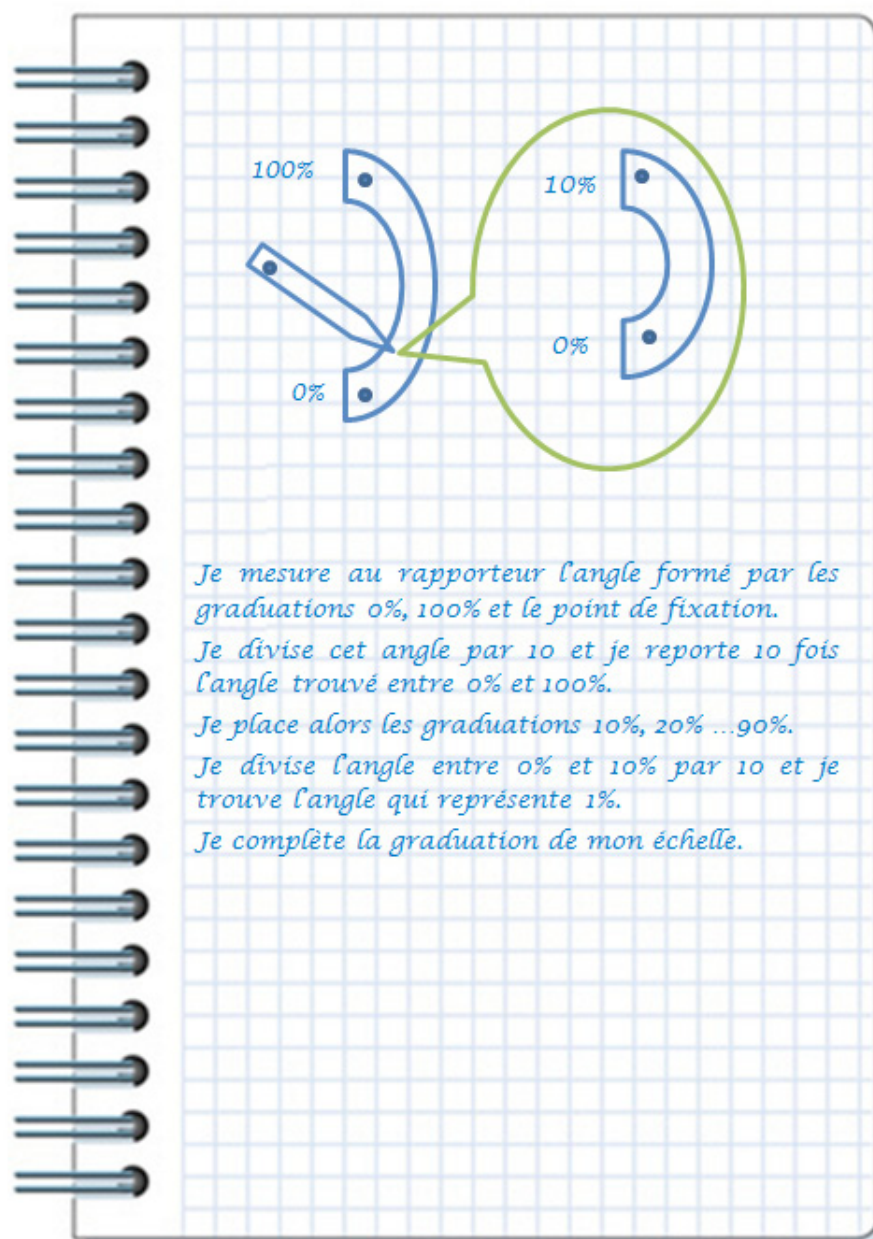 100%
10%
0%
0%
Je mesure au rapporteur l'angle formé par les
graduations 0%, 100% et le point de fixation.
Je divise cet angle par 10 et je reporte 10 fois
l'angle trouvé entre 0% et 100%.
Je place alors les graduations 10%, 20% ...90%.
Je divise l'angle entre 0% et 10% par 10 et je
trouve l'angle qui représente 1%.
Je complète la graduation de mon échelle.